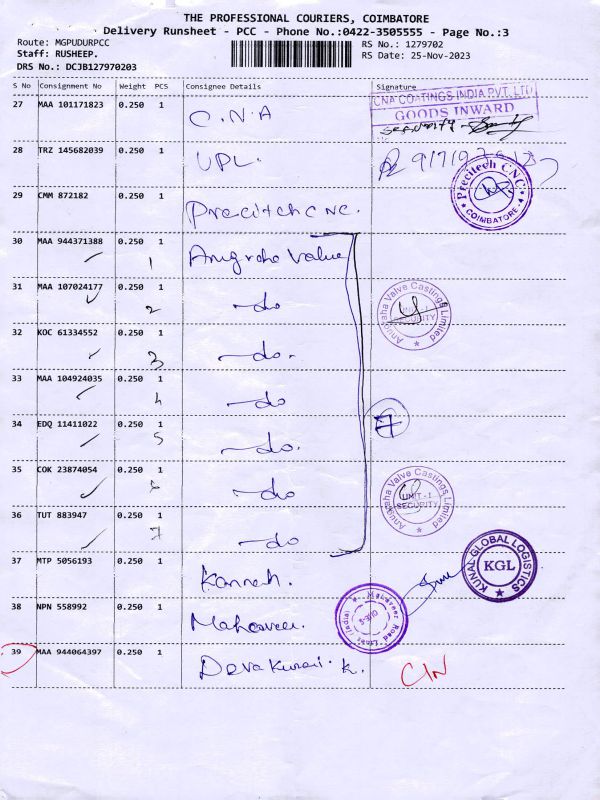 THE PROFESSIONAL COURIERS, COIMBATORE
Delivery Runsheet - PCC - Phone No.:0422-3505555 - Page No.:3
Route: MGPUDURPCC RS No.: 1279702
Staff: RUSHEEP. RS Date: 25-Nov-2023
DRS No.: DCJB127970203
S No Consignment No Weight PCS Consignee Details Signature
27 MAA 101171823 0.250 1 C.N.A
CNA COATINGS INDIA PVT. LTD
GOODS INWARD
28 TRZ 145682039 0.250 1 UPL.
29 CMM 872182 0.250 1 Precitch CNC.
Precitech CNC
COIMBATORE-4
30 MAA 944371388 0.250 1 Anugraha Value
1
31 MAA 107024177 0.250 1 -do
2
Anugraha Valve Castings Limited
UNIT-I
SECURITY
32 KOC 61334552 0.250 1 -do.
3
33 MAA 104924035 0.250 1 -do
4
34 EDQ 11411022 0.250 1 -do. 7
5
35 COK 23874054 0.250 1 -do
6
Anugraha Valve Castings Limited
UNIT-I
SECURITY
36 TUT 883947 0.250 1 -do
7
37 MTP 5056193 0.250 1 Kannah.
KUNAL GLOBAL LOGISTICS
KGL
38 NPN 558992 0.250 1 Mahaveer.
39 MAA 944064397 0.250 1 Deva Kumari. K. CIN